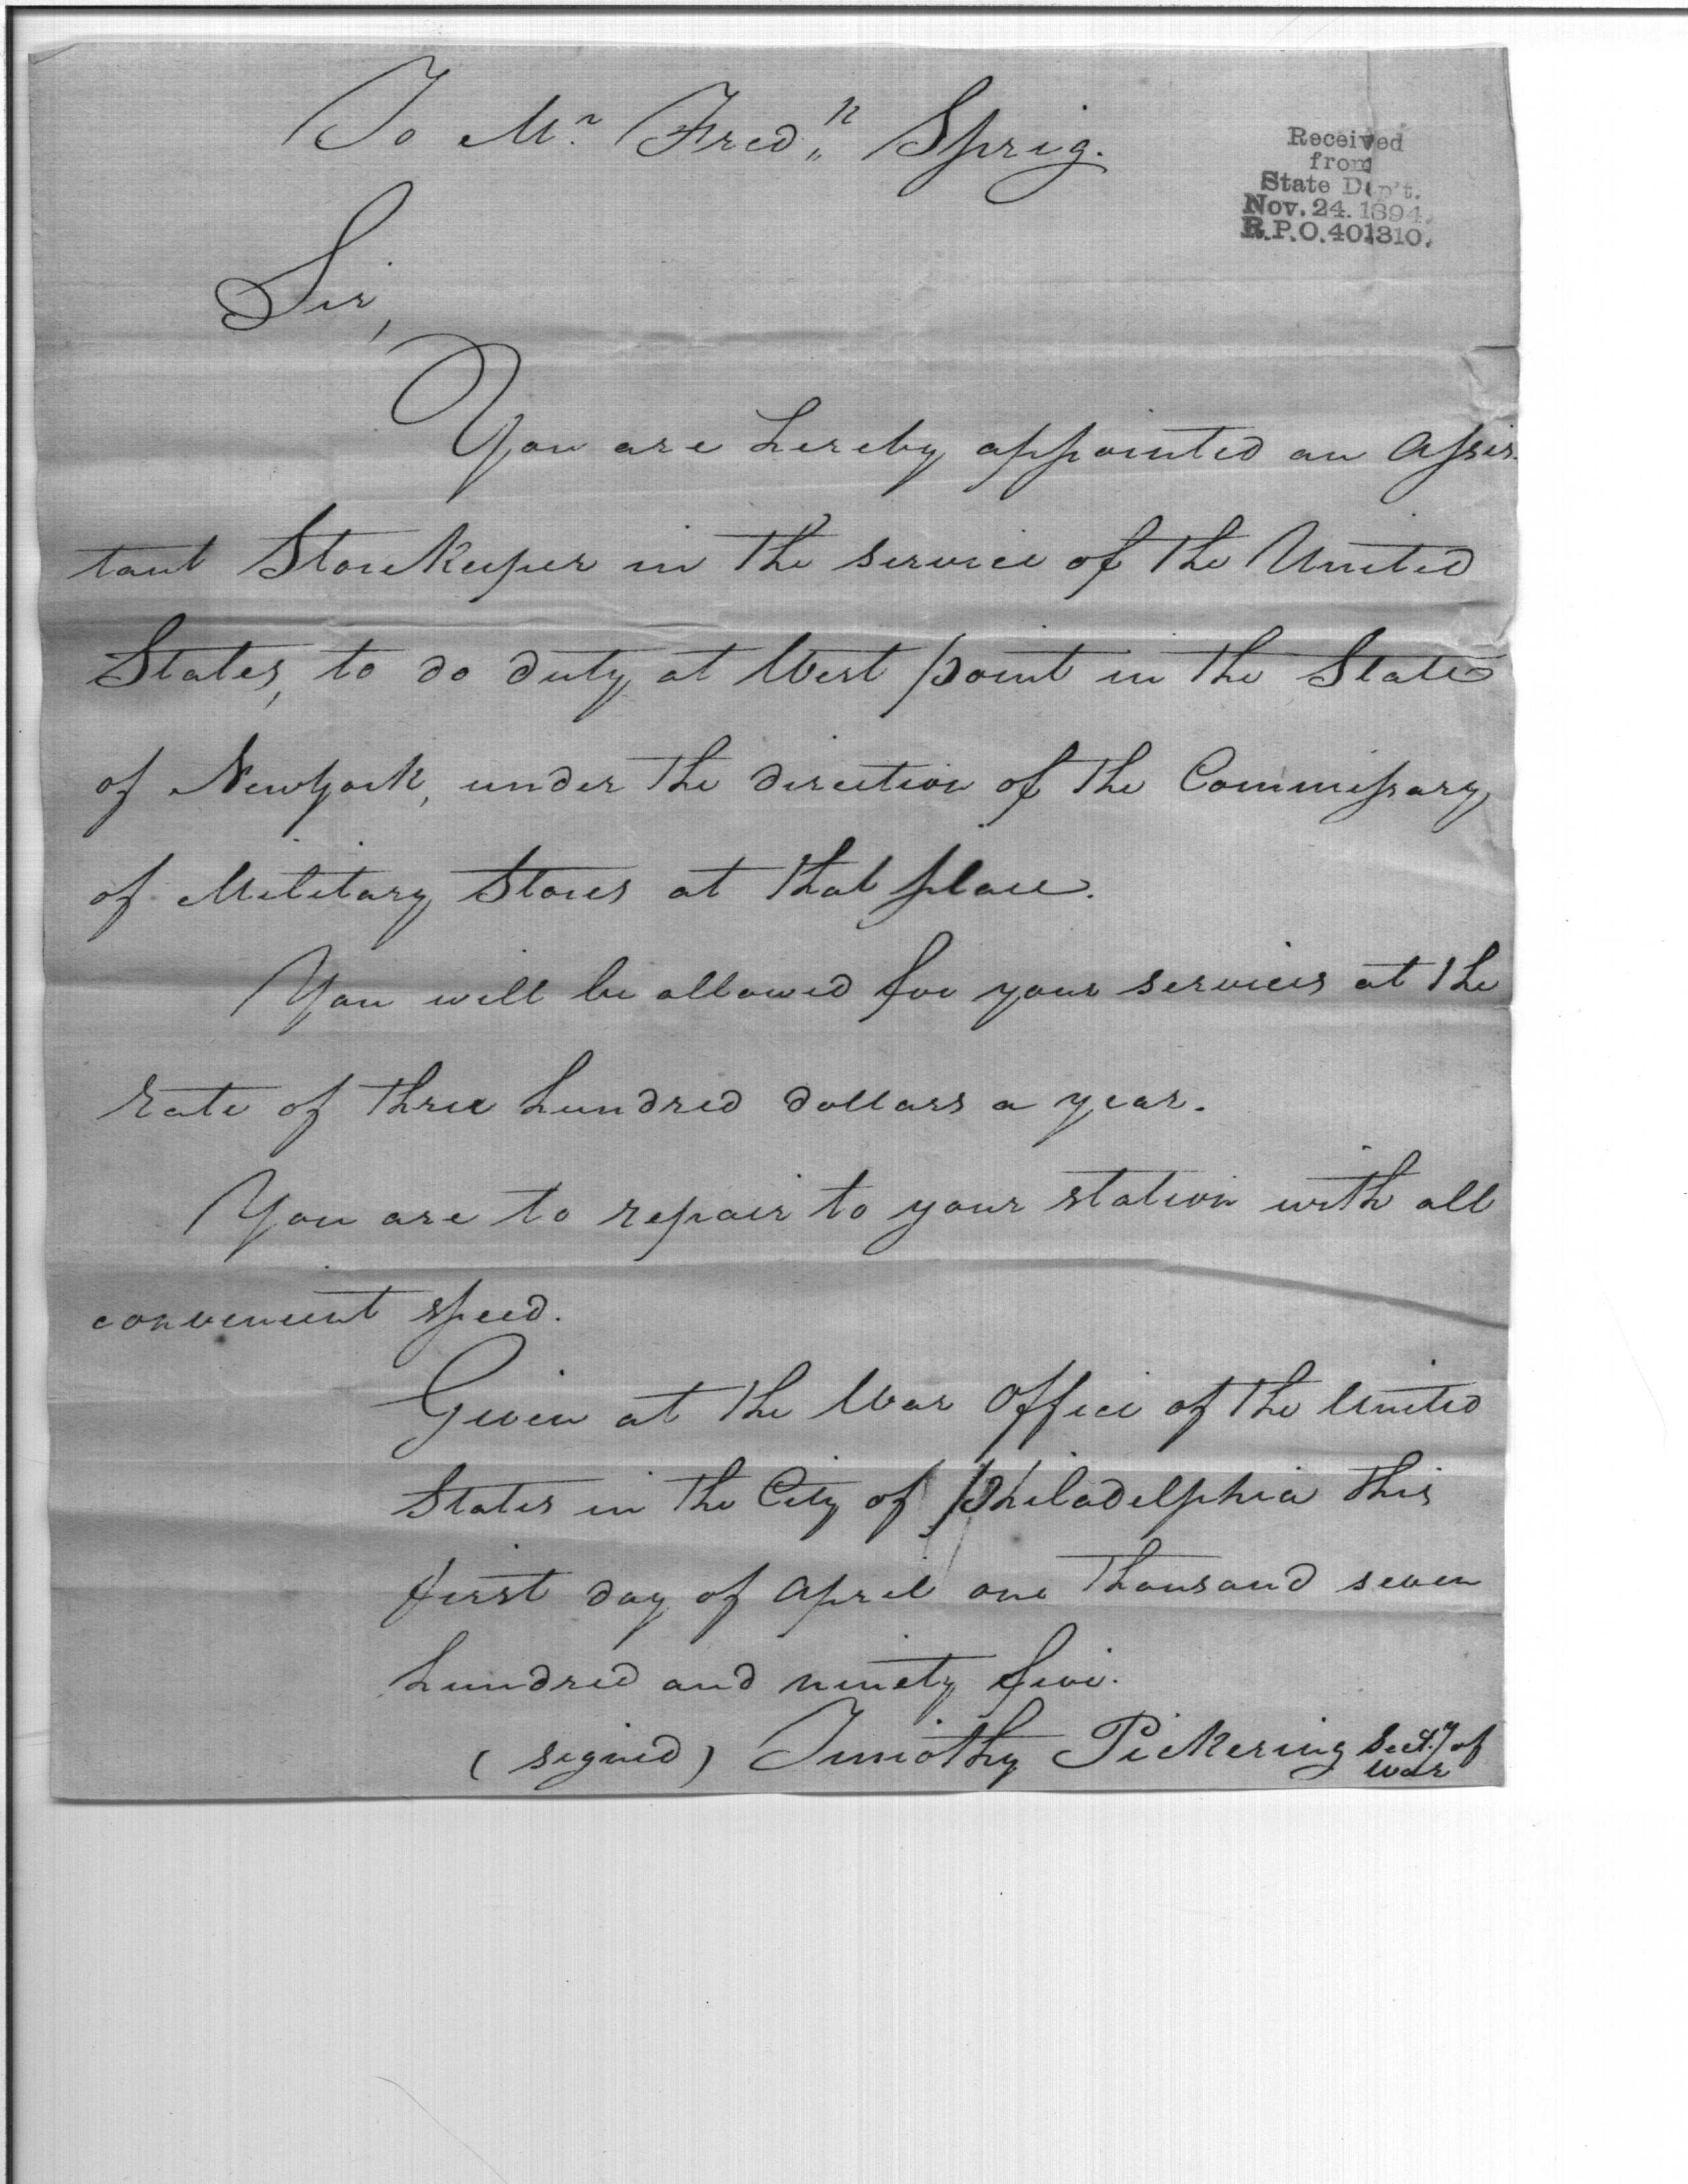 To Mr. Fred,,k Sprig.
Received
from
State Dep't.
Nov. 24. 1894.
R.P.O. 401310.
Sir,
You are hereby appointed an Assis-
tant StoreKeeper in the service of the United
States, to do duty at West point in the State
of Newyork, under the direction of the Commissary
of Military Stores at that place.
You will be allowed for your services at the
rate of three hundred dollars a year.
You are to repair to your station with all
convenient speed.
Given at the War Office of the United
States in the City of Philadelphia this
first day of April one thousand seven
hundred and ninety five.
(signed) Timothy Pickering Secty. of
War